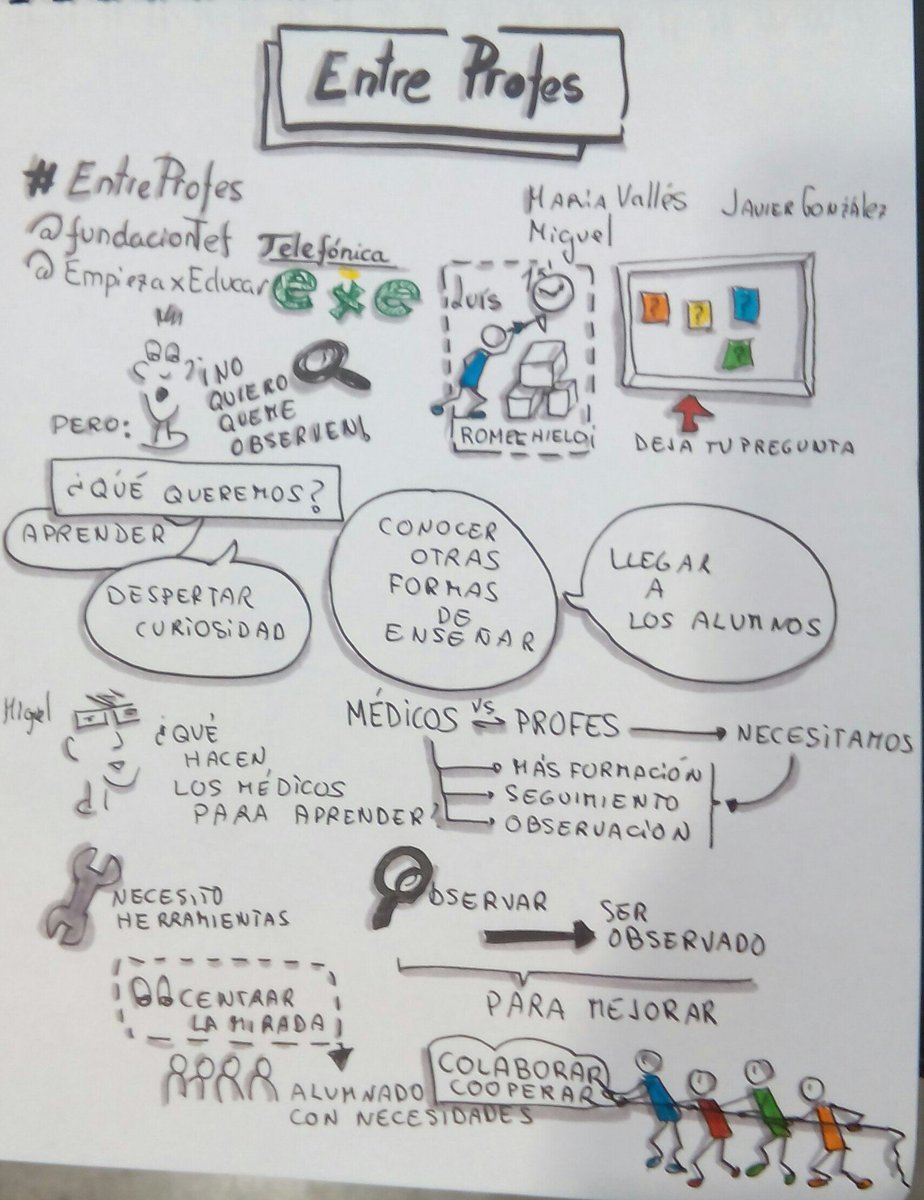 Entre Profes
#EntreProfes
@fundacionTef Telefónica
@EmpiezaxEducar exe
María Vallés
Miguel
Javier González
Luís
ROMPEHIELO
?
?
?
?
DEJA TU PREGUNTA
PERO:
¡NO
QUIERO
QUE ME
OBSERVEN!
¿QUÉ QUEREMOS?
APRENDER
DESPERTAR
CURIOSIDAD
CONOCER
OTRAS
FORMAS
DE
ENSEÑAR
LLEGAR
A
LOS ALUMNOS
Miguel
¿QUÉ
HACEN
LOS MÉDICOS
PARA APRENDER?
MÉDICOS VS PROFES → NECESITAMOS
MÁS FORMACIÓN
SEGUIMIENTO
OBSERVACIÓN
NECESITO
HERRAMIENTAS
OBSERVAR
SER
OBSERVADO
PARA MEJORAR
CENTRAR
LA MIRADA
ALUMNADO
CON NECESIDADES
COLABORAR
COOPERAR